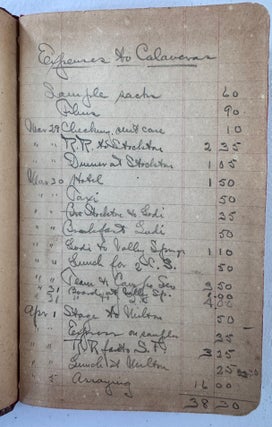 Expenses to Calaveras
Sample sacks 60
Films 90
Mar 29 Checking suit case 10
" " R.R. to Stockton 2 35
" " Dinner at Stockton 1 05
Mar 30 Hotel 1 50
" " Taxi 50
" " Car Stockton to Lodi 25
" " Breakfast Lodi 50
" " Lodi to Valley Springs 1 10
" " Lunch for 2 V.S. 50
" " Team & 2 50
" 31
" 31
Apr 1 Stage to Milton 50
" " Express on samples 25
" " R R to S.F. 3 25
" " Lunch at Milton 25
" 5 Assaying 16 00
38 30